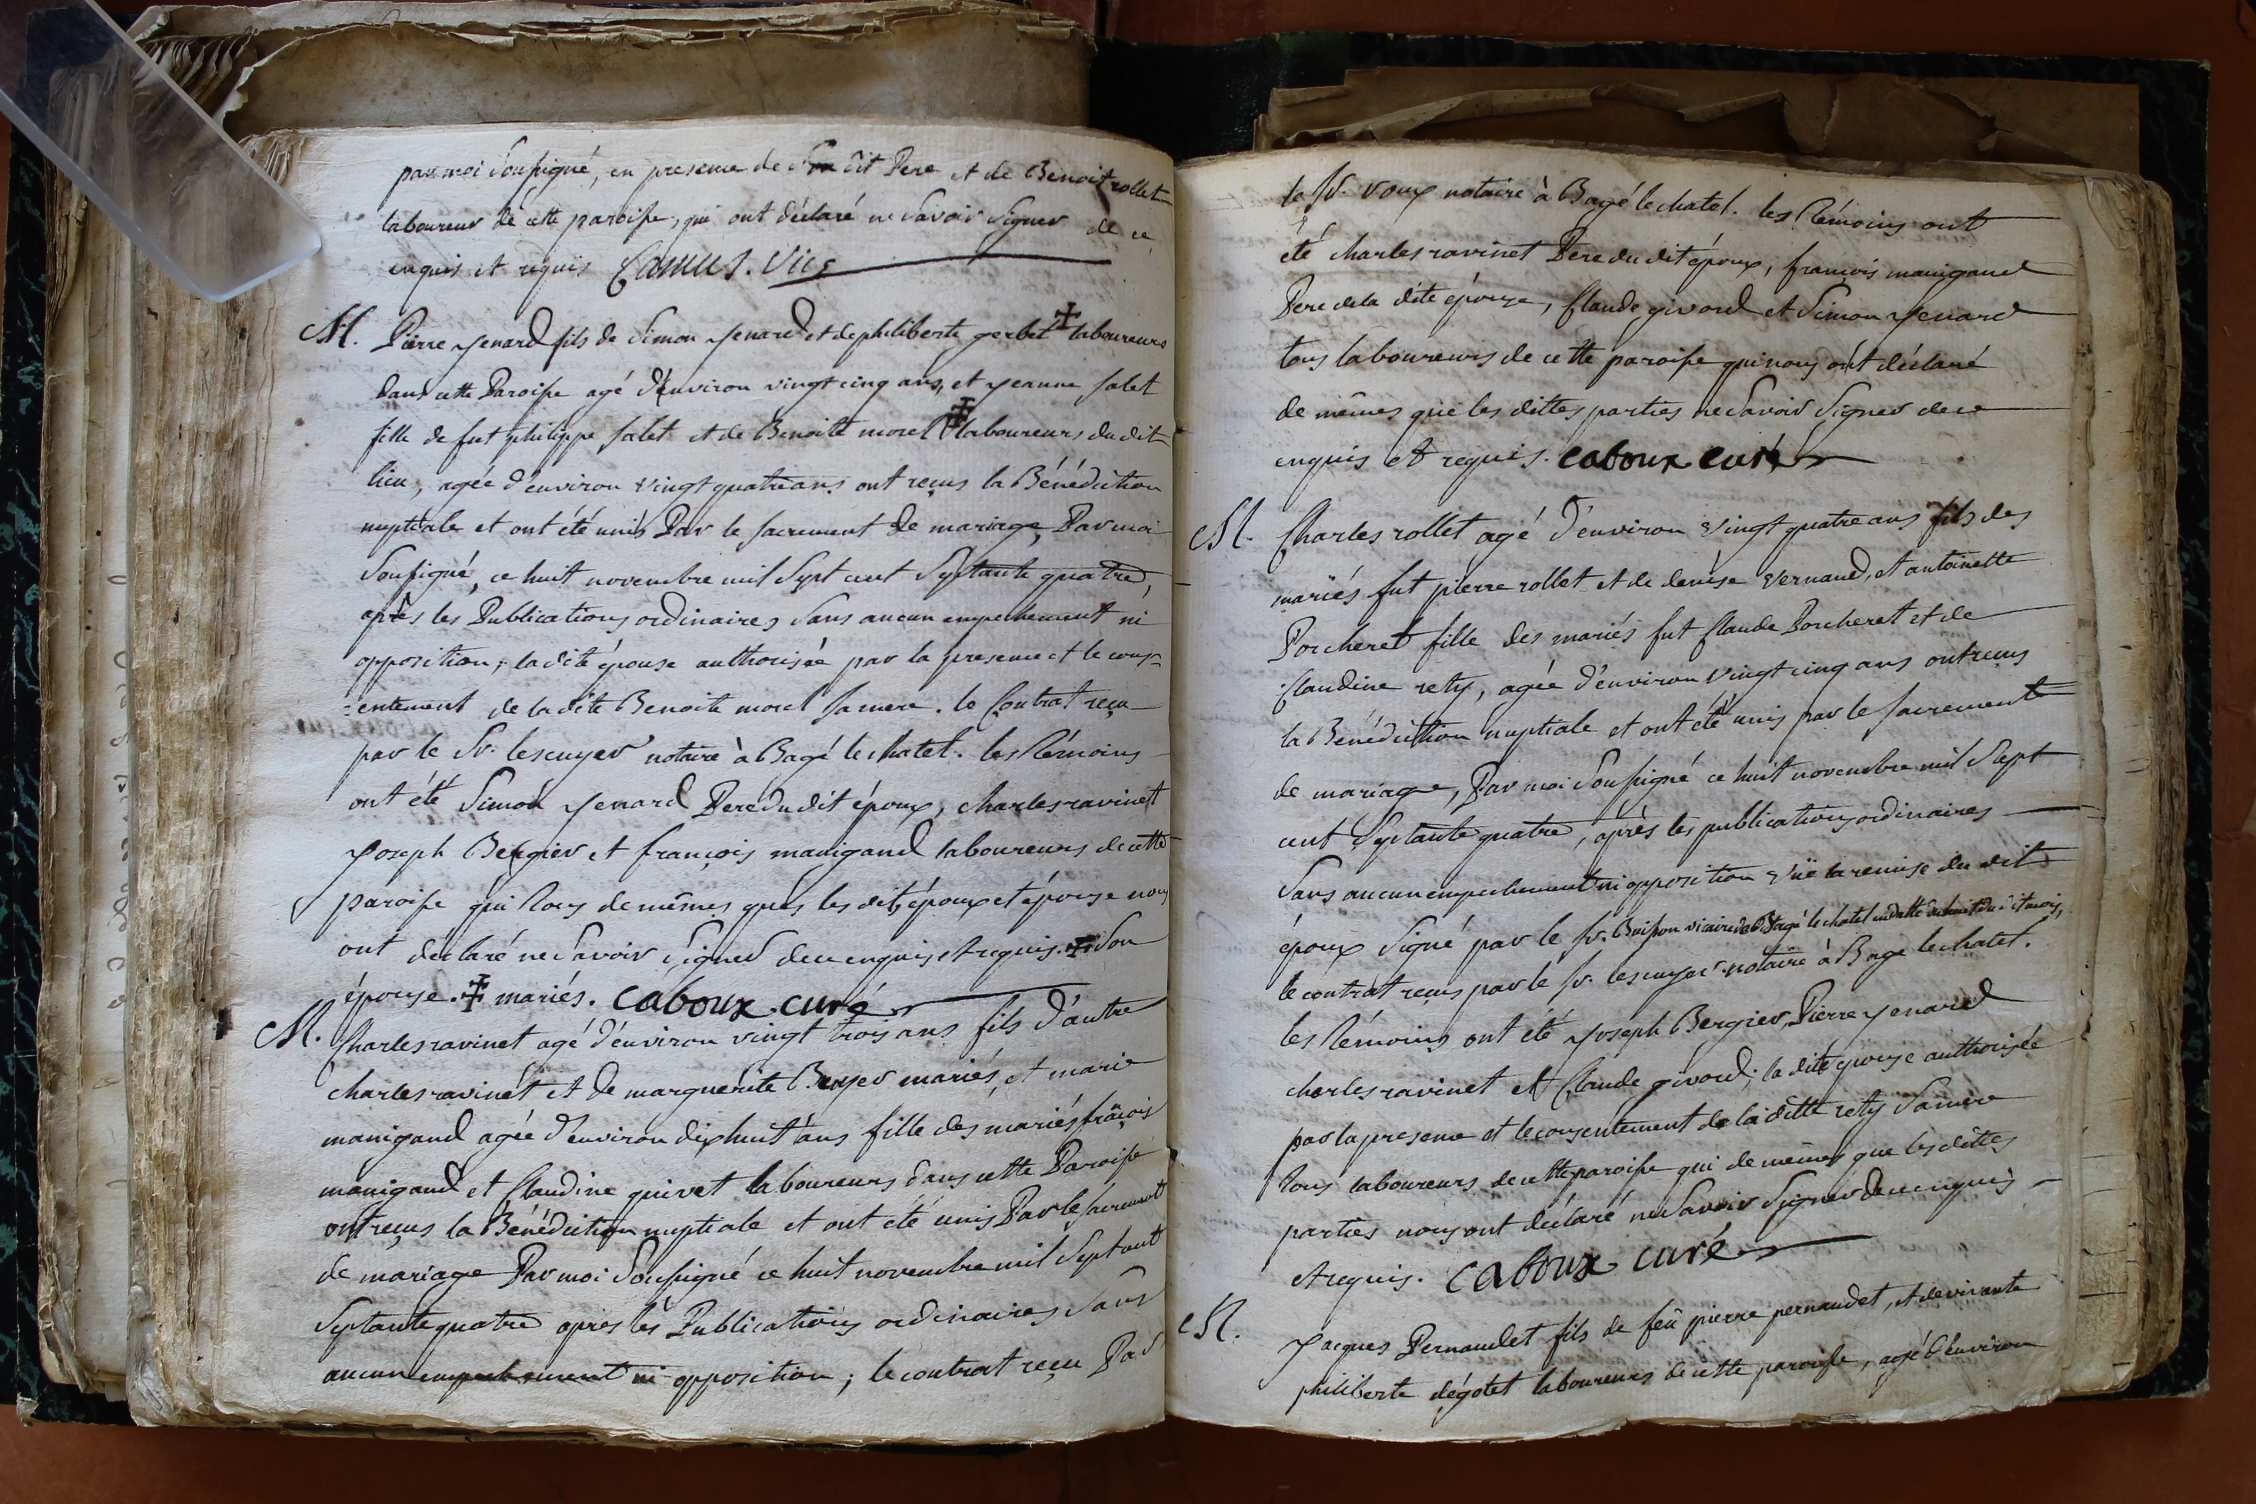 par moi soussigné, en presence de son dit Pere et de Benoit rollet
laboureur de cette paroisse, qui ont déclaré ne savoir signer de ce
enquis et requis Camus. Vic͏e
M. Pierre yenard fils de Simon yenard et de philiberte gerbet ✝ laboureurs
dans cette Paroisse agé d'environ vingt cinq ans, et yeanne salet
fille de fut philippe salet et de Benoite morel ✝ laboureurs du dit
lieu, agée d'environ vingt quatre ans ont reçus la Bénédiction
nuptiale et ont été unis Par le sacrement de mariage, Par moi
soussigné, ce huit novembre mil sept cent septante quatre,
après les Publications ordinaires sans aucun empechement ni
opposition; la dite épouse authorisée par la presence et le cons=
=entement de la dite Benoite morel sa mere. le Contrat reçu
par le Sr. lescuyer notaire à Bagé le chatel. les témoins
ont été Simon yenard Pere du dit époux, charles ravinet
yoseph Bergier et françois manigand laboureurs de cette
paroisse qui tous de mêmes ques les dits époux et épouse nous
ont déclaré ne savoir signer de ce enquis et requis. ✝ son
épouse. ✝ mariés. caboux curé
M. Charles ravinet agé d'environ vingt trois ans fils d'autre
charles ravinet et de marguerite Beyer mariés, et marie
manigand agée d'environ dix huit ans fille des mariés frãçois
manigand et Claudine guivet laboureurs dans cette Paroisse
ont reçus la Bénédiction nuptiale et ont été unis Par le sacrement
de mariage Par moi soussigné ce huit novembre mil sept cent
septante quatre après les Publications ordinaires sans
aucun empechement ni opposition; le contrat reçu Par
le Sr. voux notaire à Bagé le chatel. les témoins ont
été charles ravinet Pere du dit époux, francois manigand
Pere de la dite épouse, Claude givord et Simon yenard
tous laboureurs de cette paroisse qui nous ont déclaré
de mêmes que les dittes parties ne savoir signer de ce
enquis et requis. caboux curé
M. Charles rollet agé d'environ vingt quatre ans fils des
mariés fut pierre rollet et de denise vernaud, et antoinette
Porcheret fille des mariés fut Claude Porcheret et de
Claudine rety, agée d'environ vingt cinq ans ont reçus
la Bénédiction nuptiale et ont été unis par le sacrement
de mariage, Par moi soussigné ce huit novembre mil sept
cent septante quatre, après les publications ordinaires
sans aucun empechement ni opposition vüe la remise du dit
époux signé par le Sr. Buisson vicaire de Bagé le chatel en datte du huit du dit mois,
le contrat reçus par le Sr. lescuyer notaire à Bagé le chatel.
les témoins ont été yoseph Bergier, Pierre yenard
charles ravinet et Claude givord; la dite épouse authorisée
par la presence et le consentement de la ditte rety sa mere
tous laboureurs de cette paroisse qui de mêmes que les dittes
parties nous ont déclaré ne savoir signer de ce enquis
et requis. caboux curé
M. yacques Pernaudet fils de feû pierre pernaudet, et de vivante
philiberte dégotet laboureurs de cette paroisse, agé d'environ